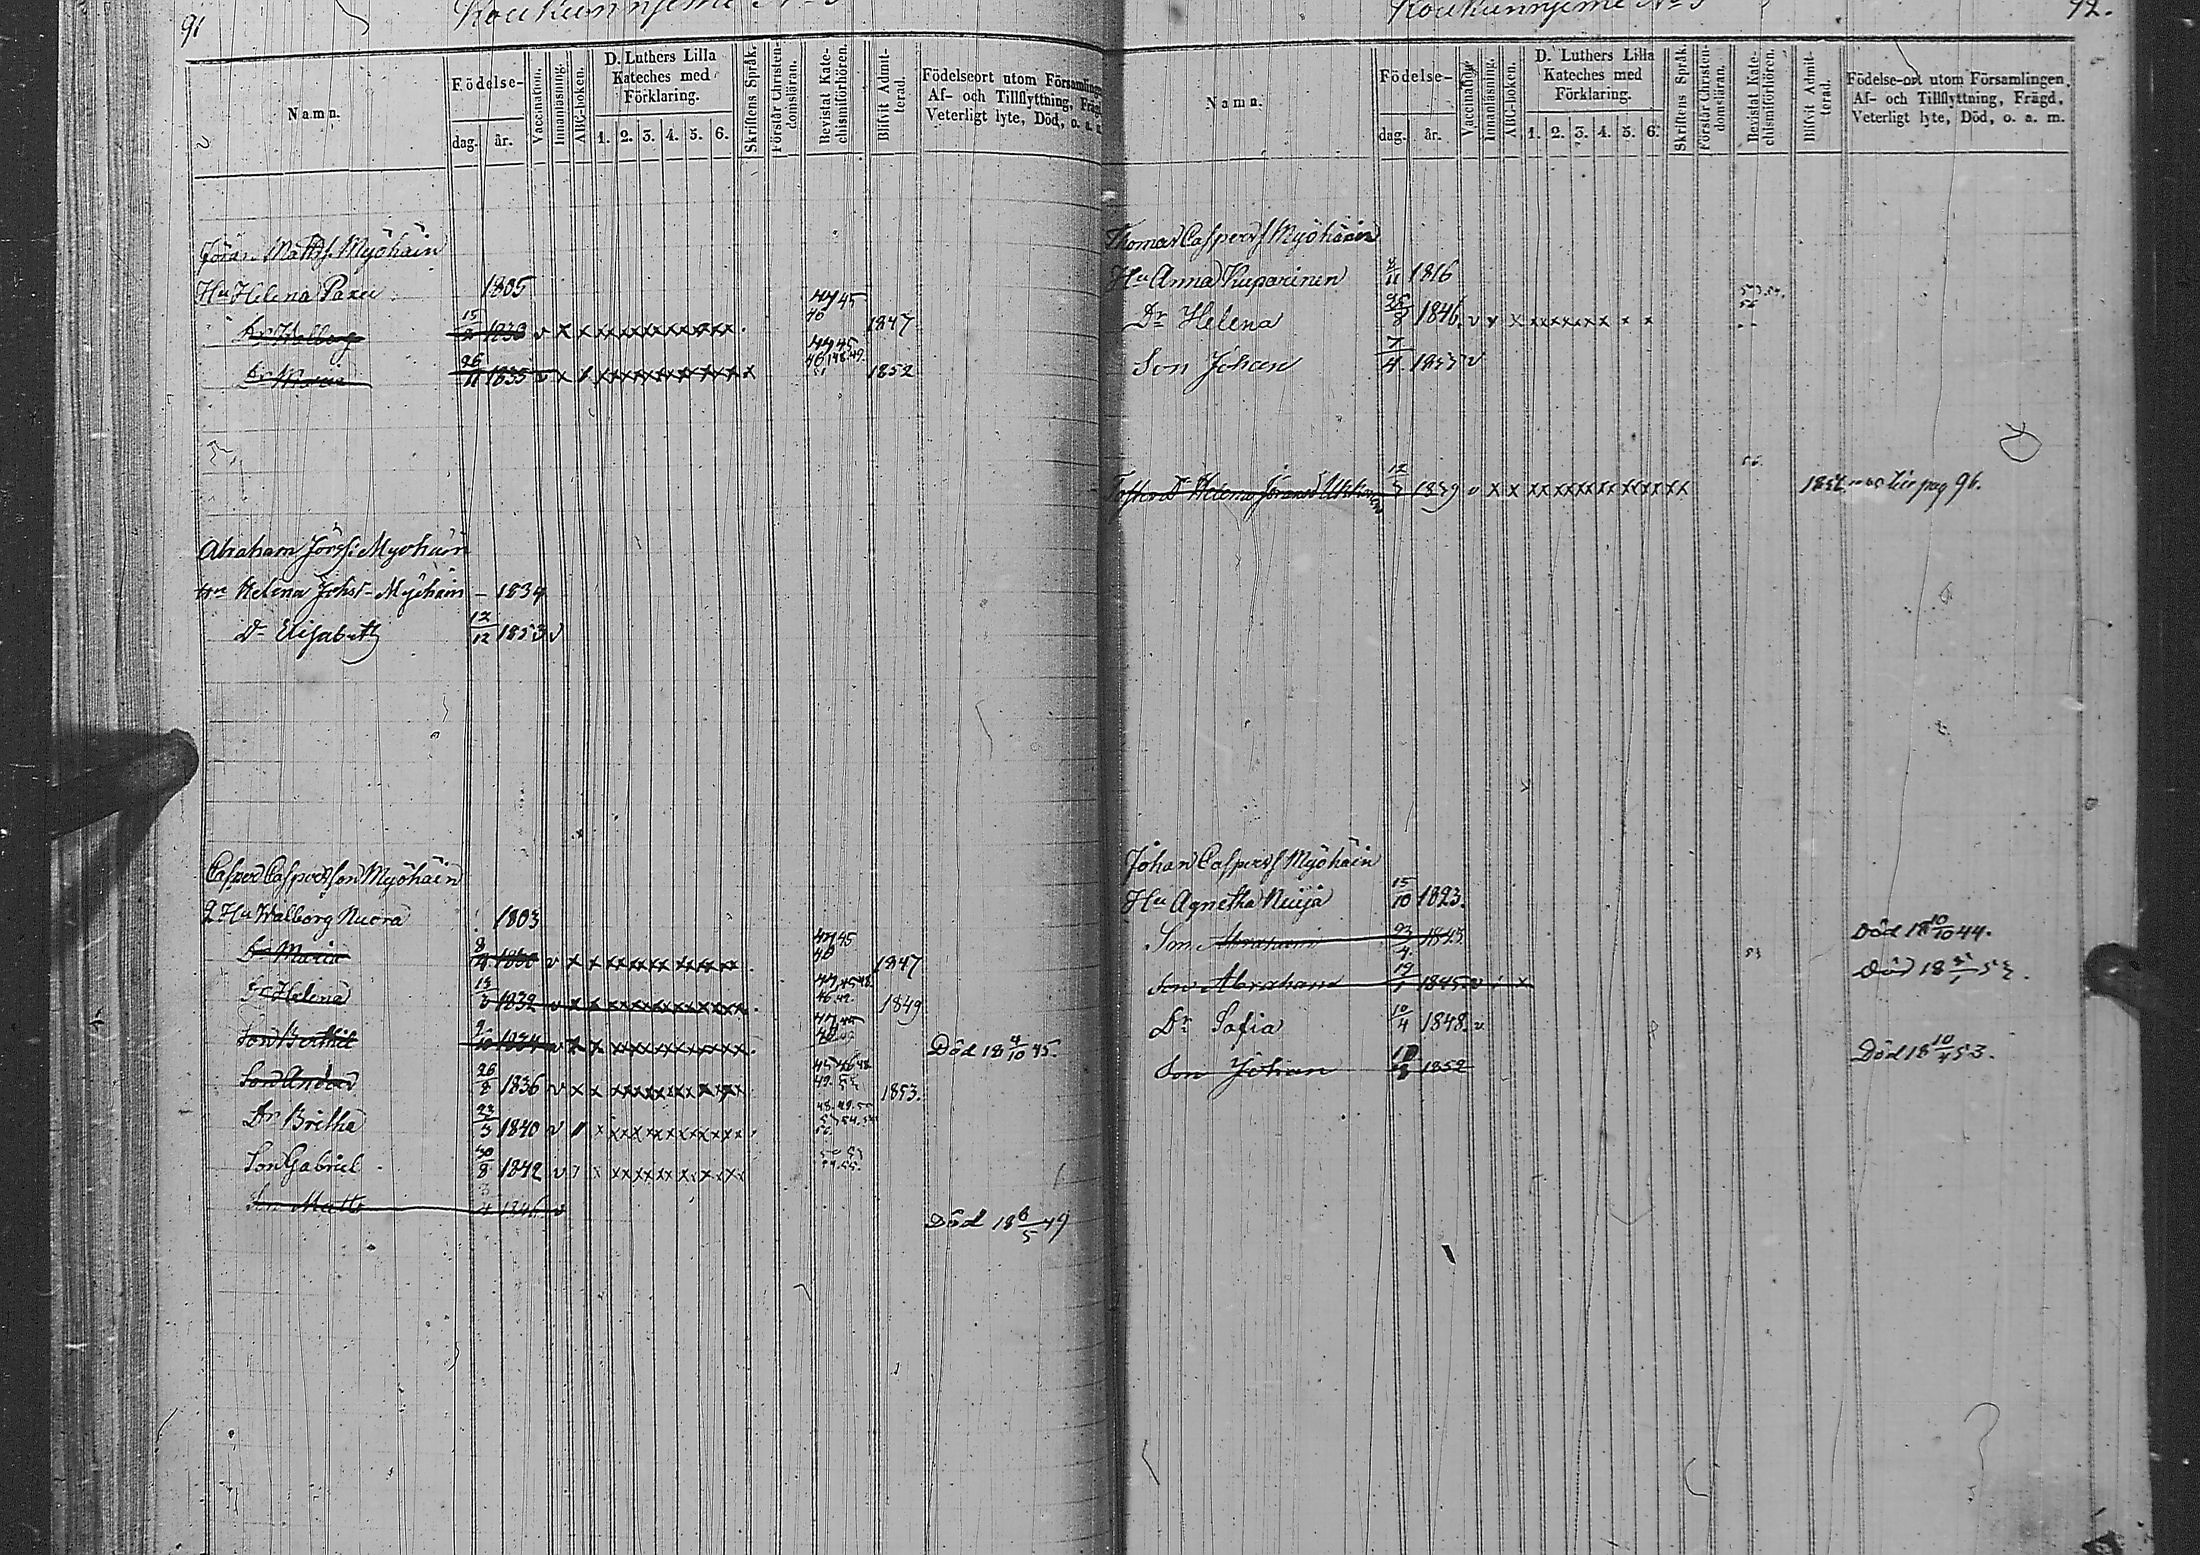 91
Koukunnjemi No 3
Namn.
Födelse-
dag.
år.
Vaccination.
Innanläsning.
ABC-boken.
D. Luthers Lilla
Kateches med
Förklaring.
1. 2. 3. 4. 5. 6.
Skriftens Språk.
Förstår Christen-
domsläran.
Bevistat Kate-
chismiförhören.
Blifvit Admit-
terad.
Födelseort utom Församling
Af- och Tillflyttning, Fräg
Veterligt lyte, Död, o. a. m
Göran Mattss. Myöhäin
Hu Helena Paxu 1805
Dr Walborg 15/2 1833 v x x xxxxxxxxxxxx 44 45 46 1847
Dr Maria 26/11 1835 v x xxxxxxxxxxxx x 44 45 46 48 49 51 1852
Abraham Jörss. Myöhäin
Hu Helena Johsd. Myöhäin – 1834
Dr Elisabeth 12/12 1853 v
Casper Caspersson Myöhäin
2 Hu Walborg Nuora 1803
Dr Maria 8/4 1830 v x x xxxxxxxxxxxx 44 45 46 1847
Dr Helena 1832 v x x xxxxxxxxxxxx 1849
Son Berthil 2/10 1834 v x x xxxxxxxxxxxx Död 18 4/10 45.
Son Anders 26/8 1836 v x x xxxxxxxxxxxx 45 46 48 49 1853.
Dr Britha 23/5 1840 v x xxxxxxxxxxxx
Son Gabriel 30/8 1842 v xxxxxxxxxxxx
Son Matts 3/4 1846 v Död 18 6/5 49
92.
Koukunnjemi No 3
Namn.
Födelse-
dag.
år.
Vaccination.
Innanläsning.
ABC-boken.
D. Luthers Lilla
Kateches med
Förklaring.
1. 2. 3. 4. 5. 6.
Skriftens Språk.
Förstår Christen-
domsläran.
Bevistat Kate-
chismiförhören.
Blifvit Admit-
terad.
Födelse-ort utom Församlingen,
Af- och Tillflyttning, Frägd,
Veterligt lyte, Död, o. a. m.
Thomas Caspers. Myöhäin
Hu Anna Kuparinen 1816
Dr Helena 25/8 1846. v v x xxxxxxx x x
Son Johan 7/4 1853 v
Dr Helena Göransd 12/5 1839 v x x xxxxxxxxxxxxxx pag 96.
Johan Caspers. Myöhäin
Hu Agnetha Nuija 15/10 1823.
Son Abraham 23/4 1843. Död 18 10/10 44.
Son Abraham 19/1 1845. v x 53 Död
Dr Sofia 10/4 1848. v
Son Johan 1852 Död 18 10/4 53.